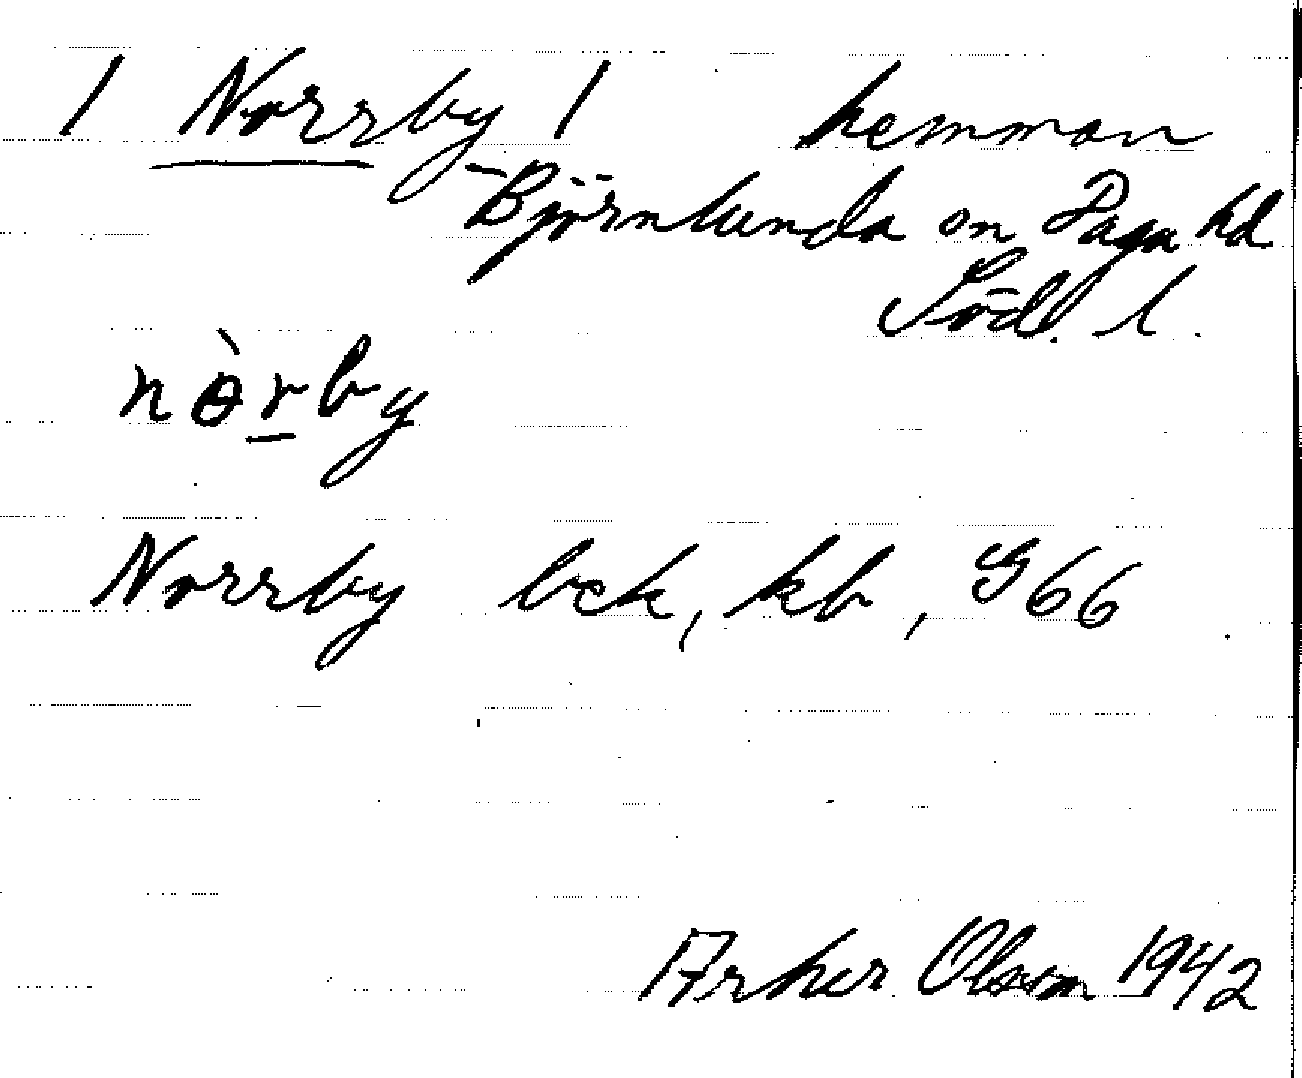 1 Norrby 1 hemman
Björnlunda sn Daga hd
Södl. l.
nɵ̀rby
Norrby bck, kb, G66
Olsson 1942